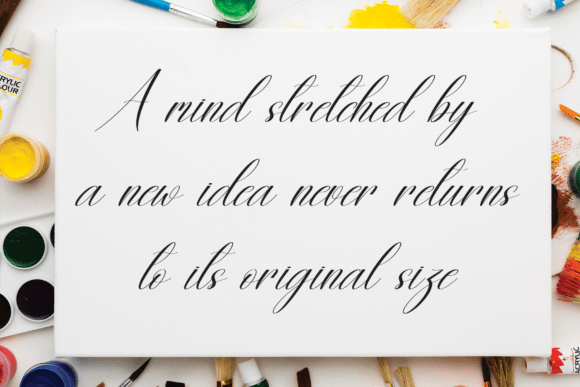 A mind stretched by
a new idea never returns
to its original size
ACRYLIC
COLOUR
ACRYLIC